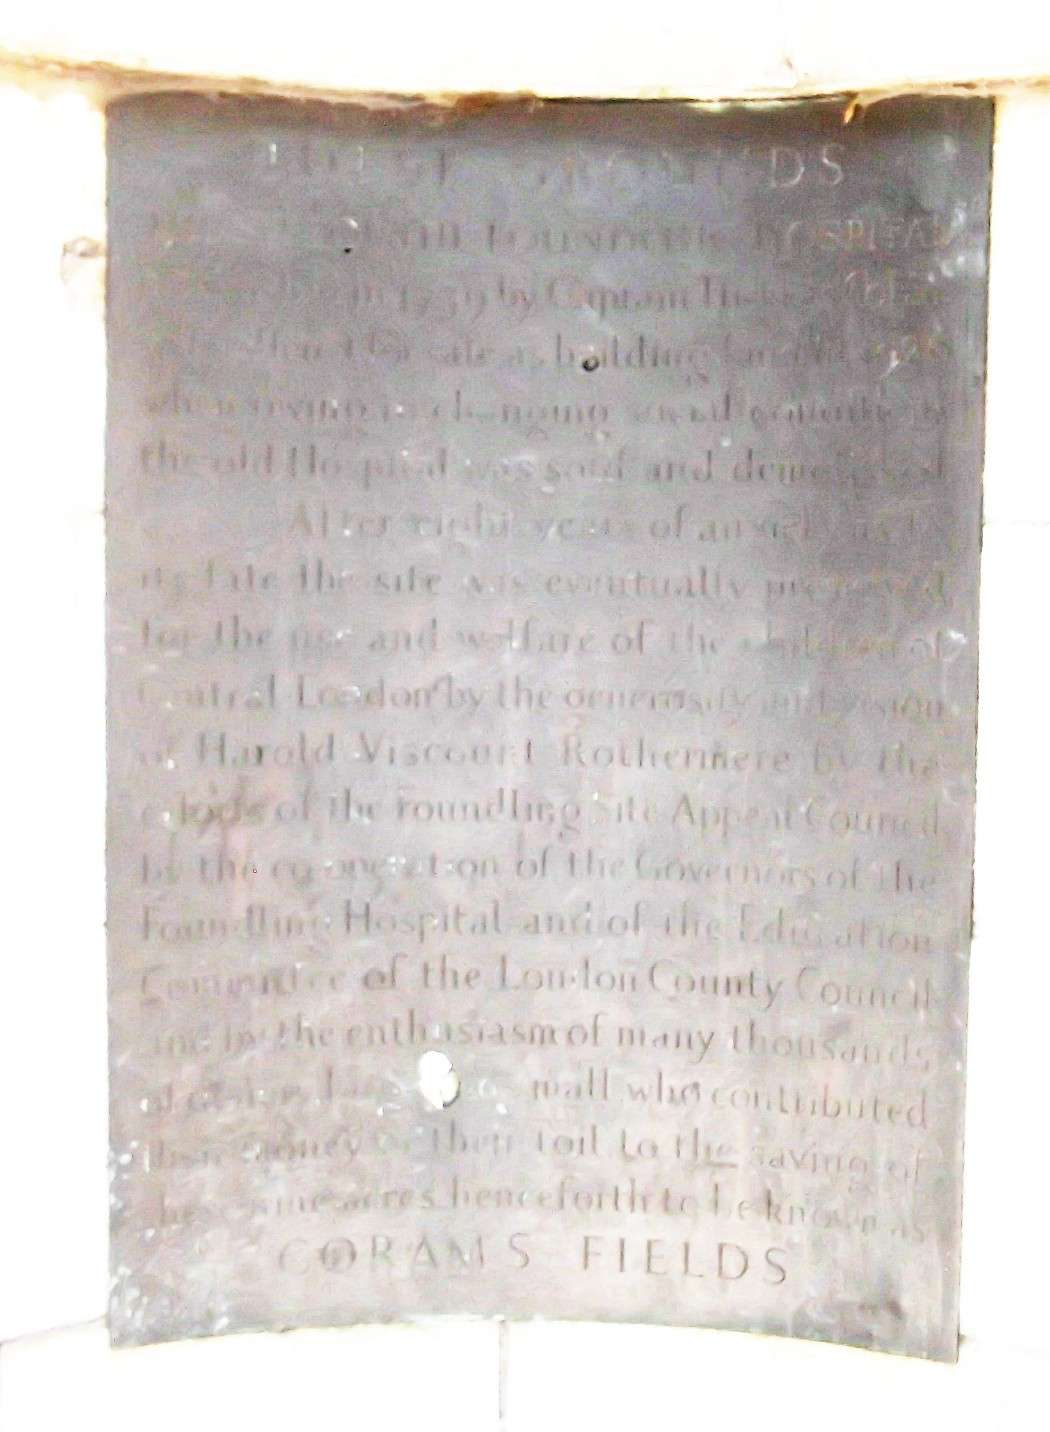 THESE GROUNDS
FOUNDLING HOSPITAL
in 1739 by Captain Thomas Coram
sale as building land in 1926
when owing to changing social conditions
the old Hospital was sold and demolished
After eight years of anxiety as to
its fate the site was eventually preserved
for the use and welfare of the children of
Central London by the generosity and vision
of Harold Viscount Rothermere by the
efforts of the Foundling Site Appeal Council
by the co-operation of the Governors of the
Foundling Hospital and of the Education
Committee of the London County Council
and by the enthusiasm of many thousands
small who contributed
their money or their toil to the saving of
these nine acres henceforth to be known as
CORAMS FIELDS